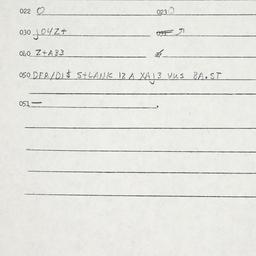 022 O 023 O
030 J04Z+
040 Z+AB3
050 DFR/DI$ S+LANK 12 A XAJ3 VUS 8A.ST
051 —